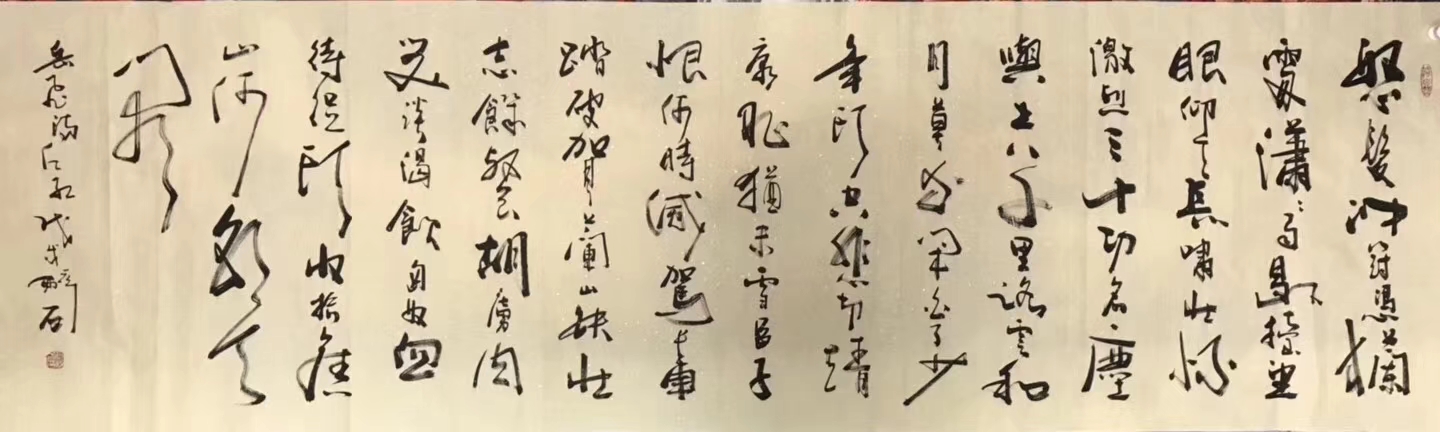 怒髮冲冠憑欄
處瀟瀟雨歇擡望
眼仰天長嘯壯懷
激烈三十功名塵
與土八千里路雲和
月莫等閑白了少
年頭空悲切靖
康耻猶未雪臣子
恨何時滅駕長車
踏破賀蘭山缺壯
志饑餐胡虜肉
笑談渴飲匈奴血
待從頭收拾舊
山河朝天
闕
岳飛滿江紅戊戌石